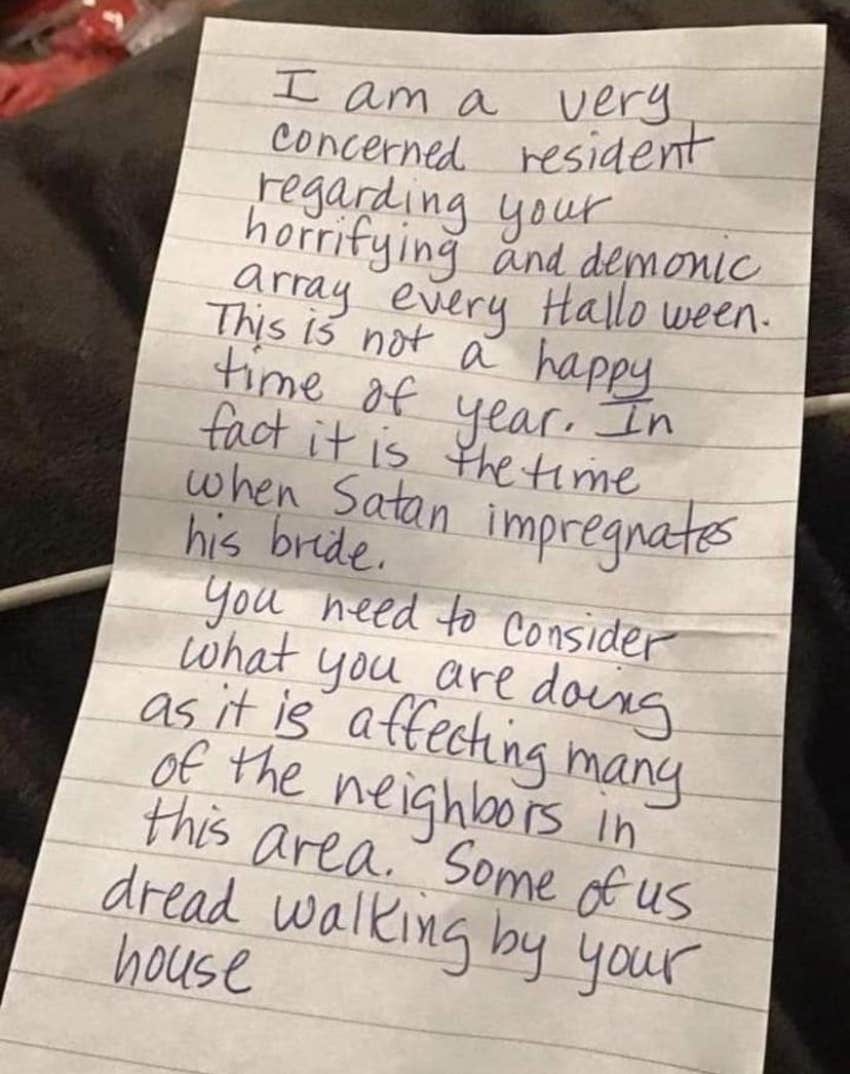 I am a very
concerned resident
regarding your
horrifying and demonic
array every Hallo ween.
This is not a happy
time of year. In
fact it is the time
when Satan impregnates
his bride.
You need to consider
what you are doing
as it is affecting many
of the neighbors in
this area. Some of us
dread walking by your
house